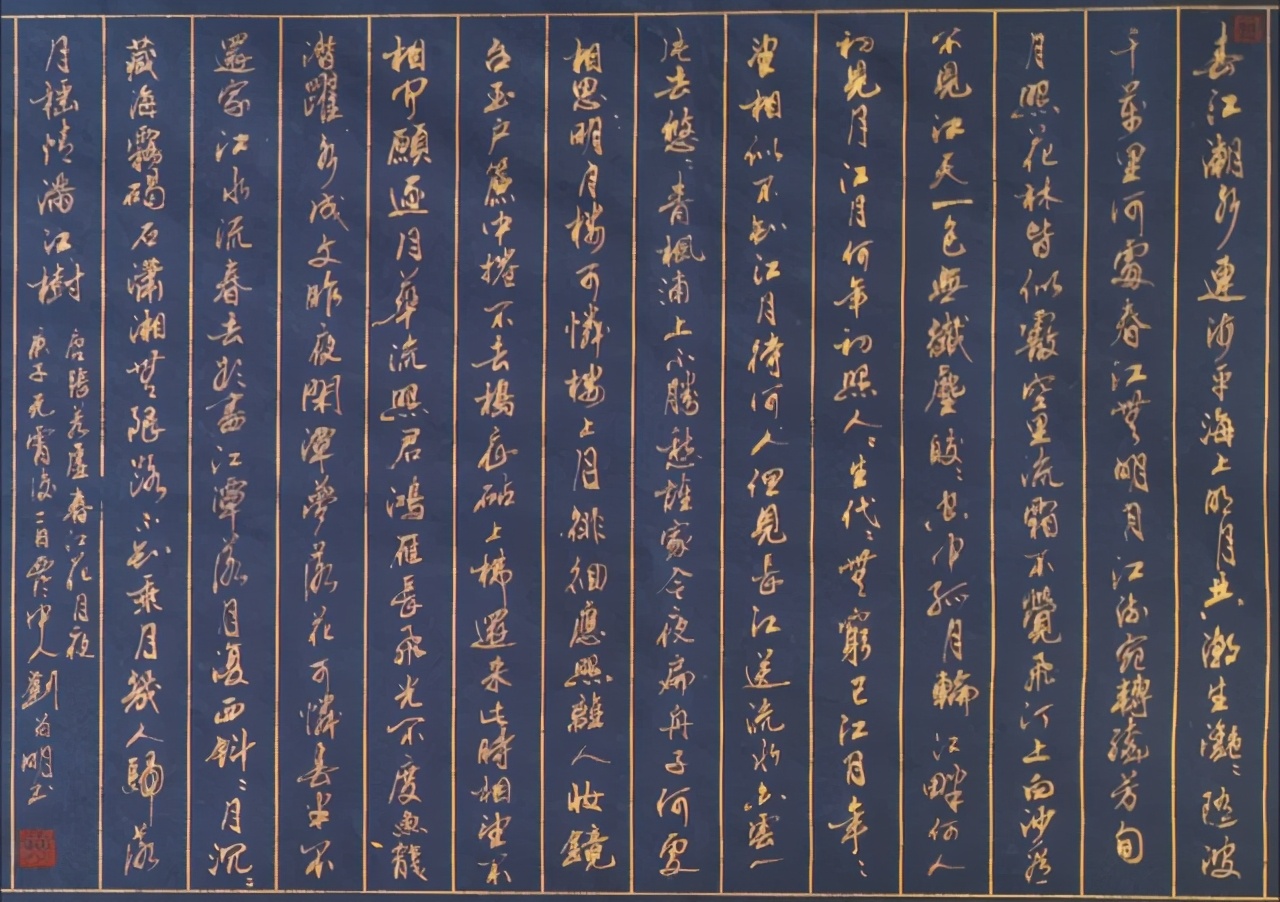 春江潮水連海平海上明月共潮生灩々隨波
千萬里何處春江無明月江流宛轉繞芳甸
月照花林皆似霰空里流霜不覺飛汀上白沙看
不見江天一色無纖塵皎々空中孤月輪江畔何人
初見月江月何年初照人々生代々無窮已江月年々
望相似不知江月待何人但見長江送流水白雲一
片去悠々青楓浦上不勝愁誰家今夜扁舟子何處
相思明月楼可憐楼上月徘徊應照離人妝鏡
台玉戶簾中捲不去搗衣砧上拂還來此時相望不
相聞願逐月華流照君鴻雁長飛光不度魚龍
潛躍水成文昨夜閑潭夢落花可憐春半不
還家江水流春去欲盡江潭落月復西斜々月沉々
藏海霧碣石瀟湘無限路不知乘月幾人歸落
月搖情滿江樹
唐張若虛春江花月夜
庚子元宵後二日中人劉為明書